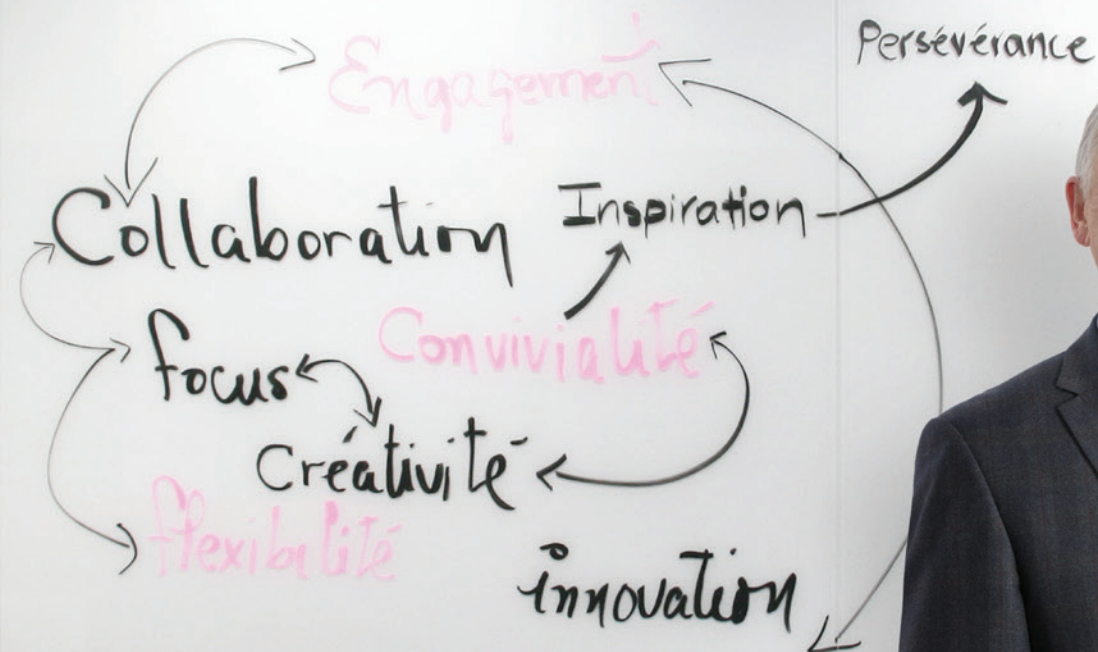 Engagement
Persévérance
Collaboration
Inspiration
Convivialité
focus
Créativité
flexibilité
innovation